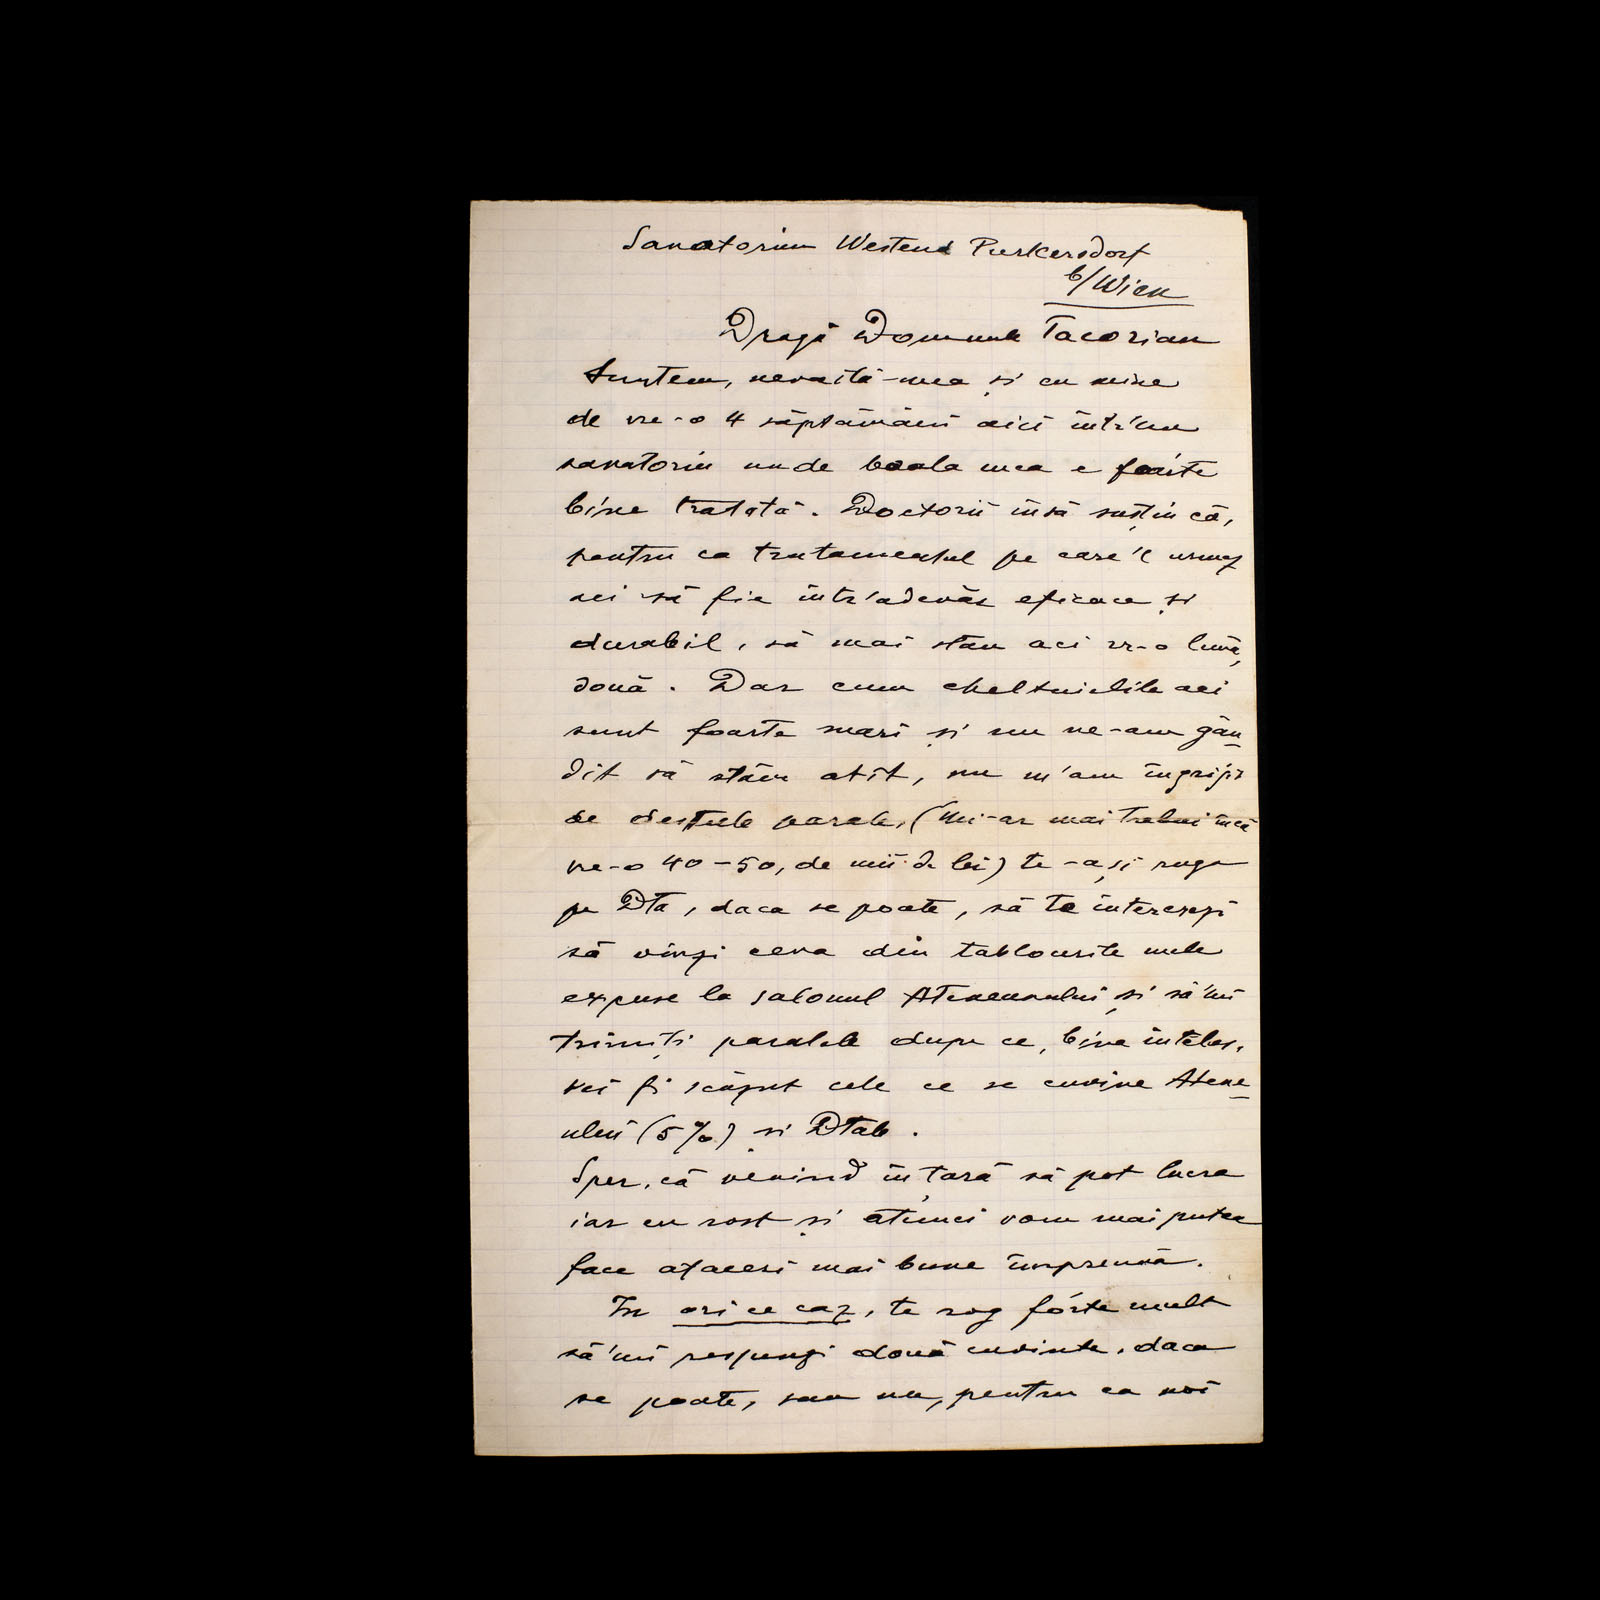 Sanatorium Westend Purkersdorf
b/Wien
Dragă Domnule Tacorian
Suntem, nevastă-mea și cu mine
de vre-o 4 săptămâni aici într'un
sanatoriu unde boala mea e foarte
bine tratată. Doctorii însă susțin că,
pentru ca tratamentul pe care'l urmez
aci să fie într'adevăr eficace și
durabil, să mai stau aci vr-o lună,
două. Dar cum cheltuielile aci
sunt foarte mari și nu ne-am gân
dit să stăm atît, nu m'am îngrijit
de destule parale, (Mi-ar mai trebui încă
vre-o 40-50, de mii de lei) te-ași ruga
pe Dta, daca se poate, să te interesezi
să vinzi ceva din tablourile mele
expuse la salonul Ateneumului și să'mi
trimiți paralele dupe ce, bine înteles,
vei fi scăzut cele ce se cuvine Atene
ului (5%) si Dtale.
Sper, că venind în țară să pot lucra
iar cu rost și atunci vom mai putea
face afaceri mai bune împreună.
In ori ce caz, te rog fórte mult
să'mi respunzi două cuvinte, daca
se poate, sau nu, pentru ca noi